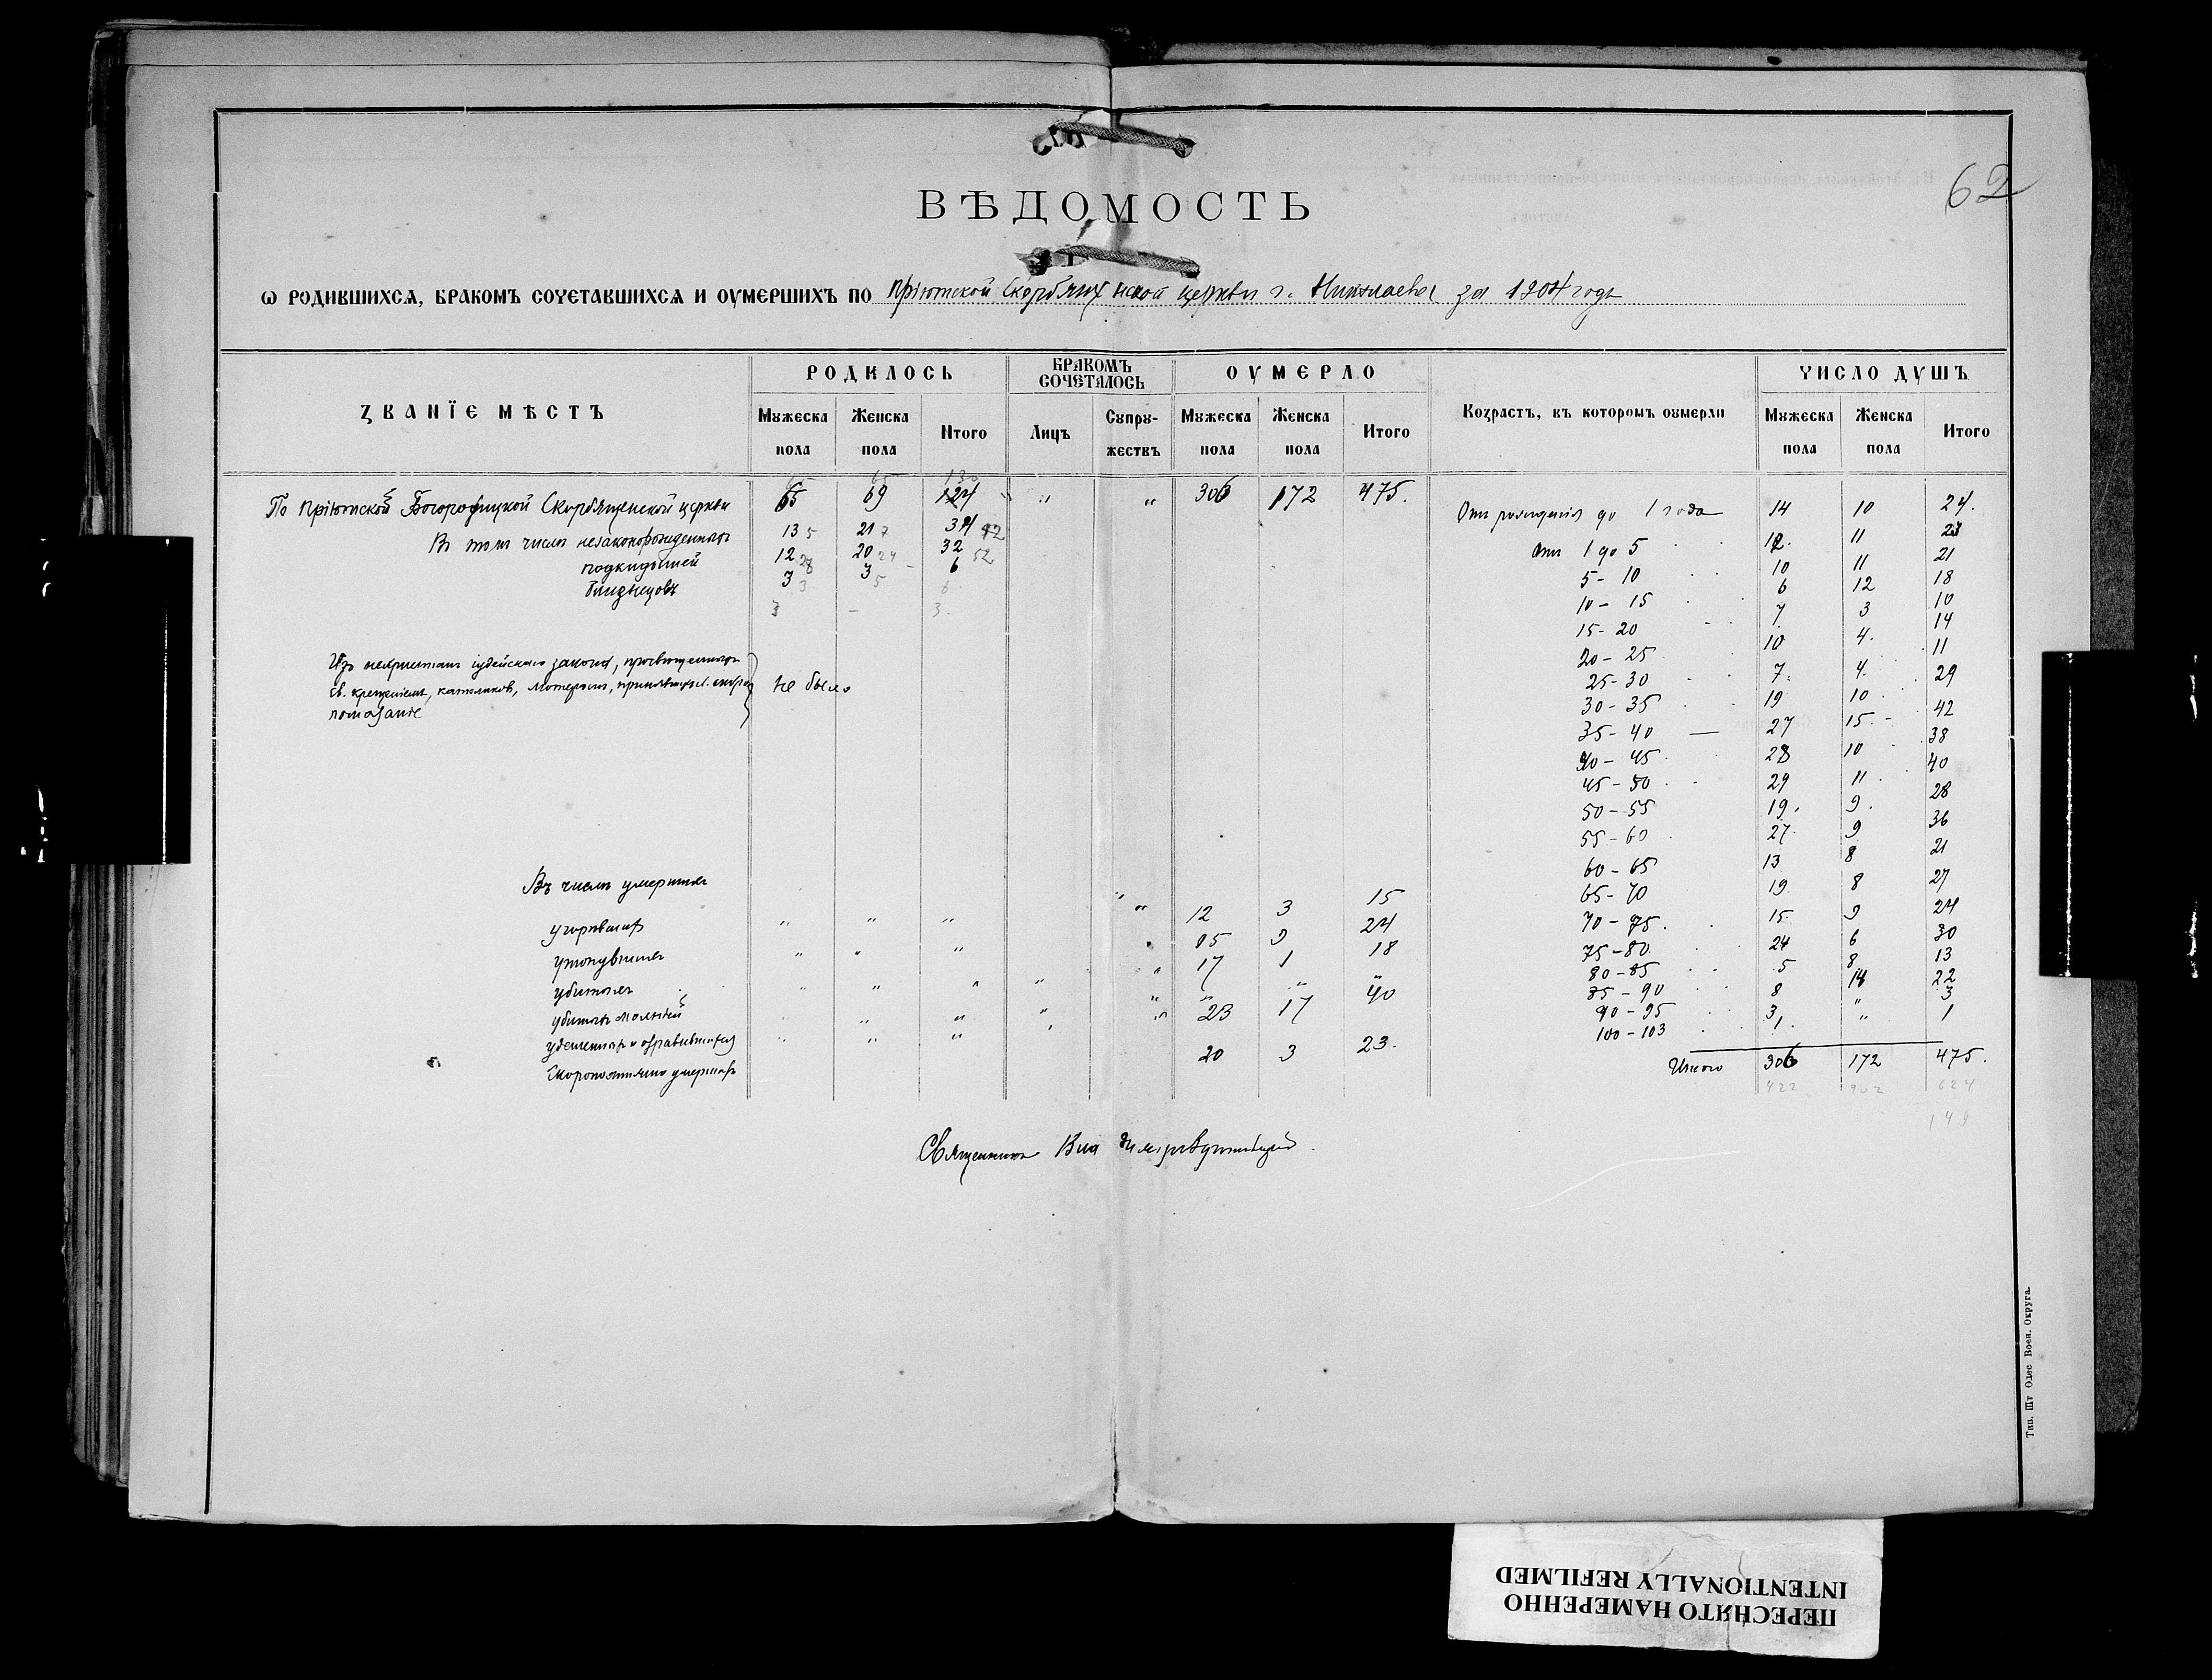 62
ВѢДОМОСТЬ
Ѡ РОДИВШИХСѦ, БРАКОМЪ СОЧЕТАВШИХСѦ И ОУМЕРШИХЪ ПО Пріютской Скорбященской церкви г. Николаева за 1904 годъ
ЗВАНЇЕ МѢСТЪ РОДИЛОСЬ БРАКОМЪ СОЧЕТАЛОСЬ ОУМЕРЛО Возрастъ, въ которомъ оумерли ЧИСЛО ДУШЪ
Мужеска пола Женска пола Итого Лицъ Супружествъ Мужеска пола Женска пола Итого Мужеска пола Женска пола Итого
65 130
По Пріютской Богородицкой Скорбященской церкви 65 69 124 " " 306 172 475.
Въ томъ числѣ незаконорожденныхъ 13 5 21 7 34 12
подкидышей 12 28 20 24 32 52
близнецовъ 3 3 3 5 6 8
3 — 3.
Изъ нехристіанъ іудейскаго закона, просвѣщенныхъ
св. крещеніемъ, католиковъ, лютеранъ, принявшихъ не было
помазаніе
Въ числѣ умершихъ
угорѣвшихъ " " " " 12 3 15
утонувшихъ " " " " 15 9 24
убитыхъ " " " " " 17 1 18
убитыхъ молніей " " " " " " " "
удавленныхъ и отравившихся " " " " 23 17 40
Скоропостижно умершихъ 20 3 23.
Отъ рожденія до 1 года 14 10 24.
Отъ 1 до 5 12. 11 23
5 - 10 10 11 21
10 - 15 6 12 18
15 - 20 7 3 10
20 - 25 10 4. 14
25 - 30 7. 4. 11
30 - 35 19 10 29
35 - 40 — 27 15. 42
40 - 45 28 10 38
45 - 50 29 11 40
50 - 55 19. 9. 28
55 - 60 27. 9 36
60 - 65 13 8 21
65 - 70 19 8 27
70 - 75. 15. 9 24
75 - 80. 24 6 30
80 - 85 5 8 13
85 - 90 8 14 22
90 - 95 3 " 3
100 - 103 1. " 1
Итого 306 172 475.
422 202 624
149
Священникъ
Тип. Шт Одес Воен. Округа.
ПЕРЕСНЯТО НАМЕРЕННО
INTENTIONALLY REFILMED